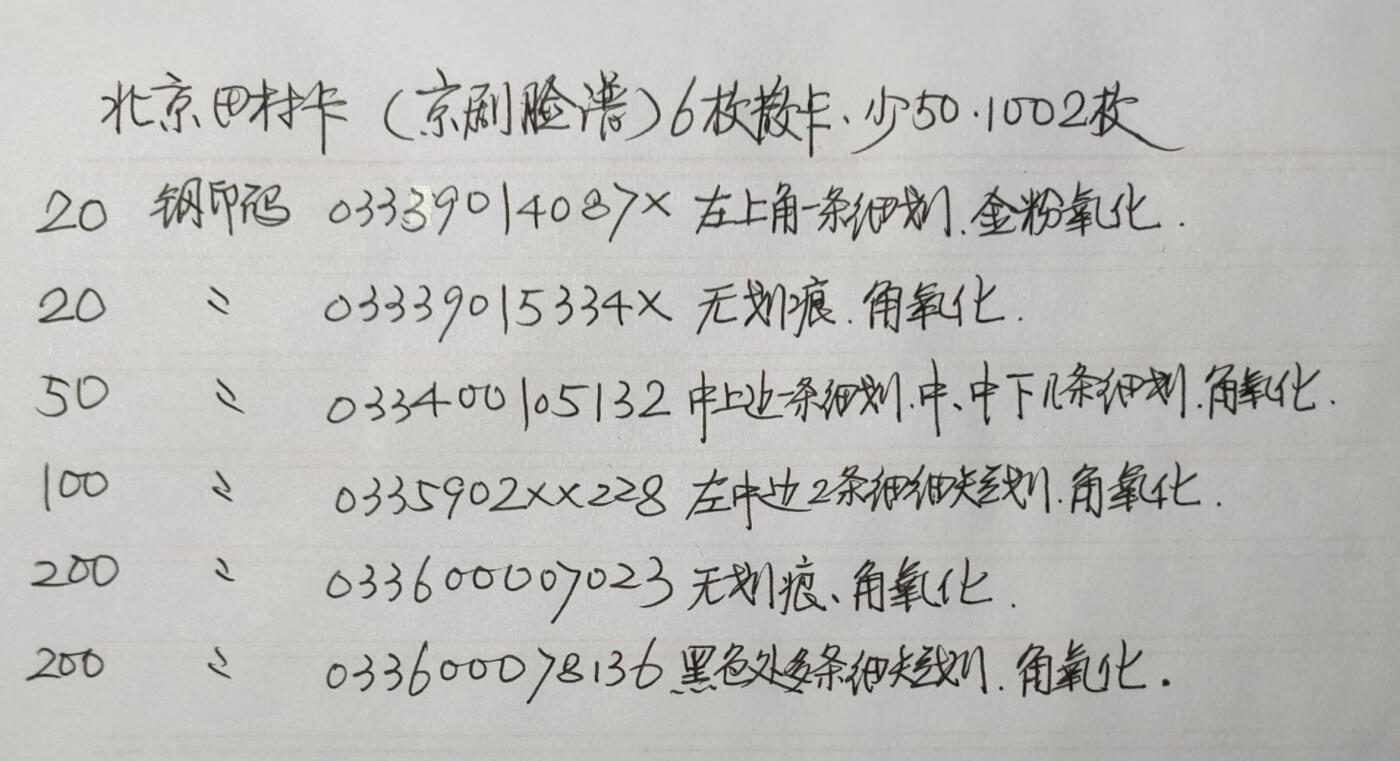 北京田村卡(京剧脸谱)6枚散卡、少50.1002枚
20 钢印码 03339014087× 左上角一条细划.金粉氧化.
20 〃 03339015334× 无划痕.角氧化.
50 〃 033400105132 中上边一条细划.中、中下几条细划.角氧化.
100 〃 0335902××228 左中边2条细细短划.角氧化.
200 〃 033600007023 无划痕、角氧化.
200 〃 033600078136 黑色处多条细短划.角氧化.